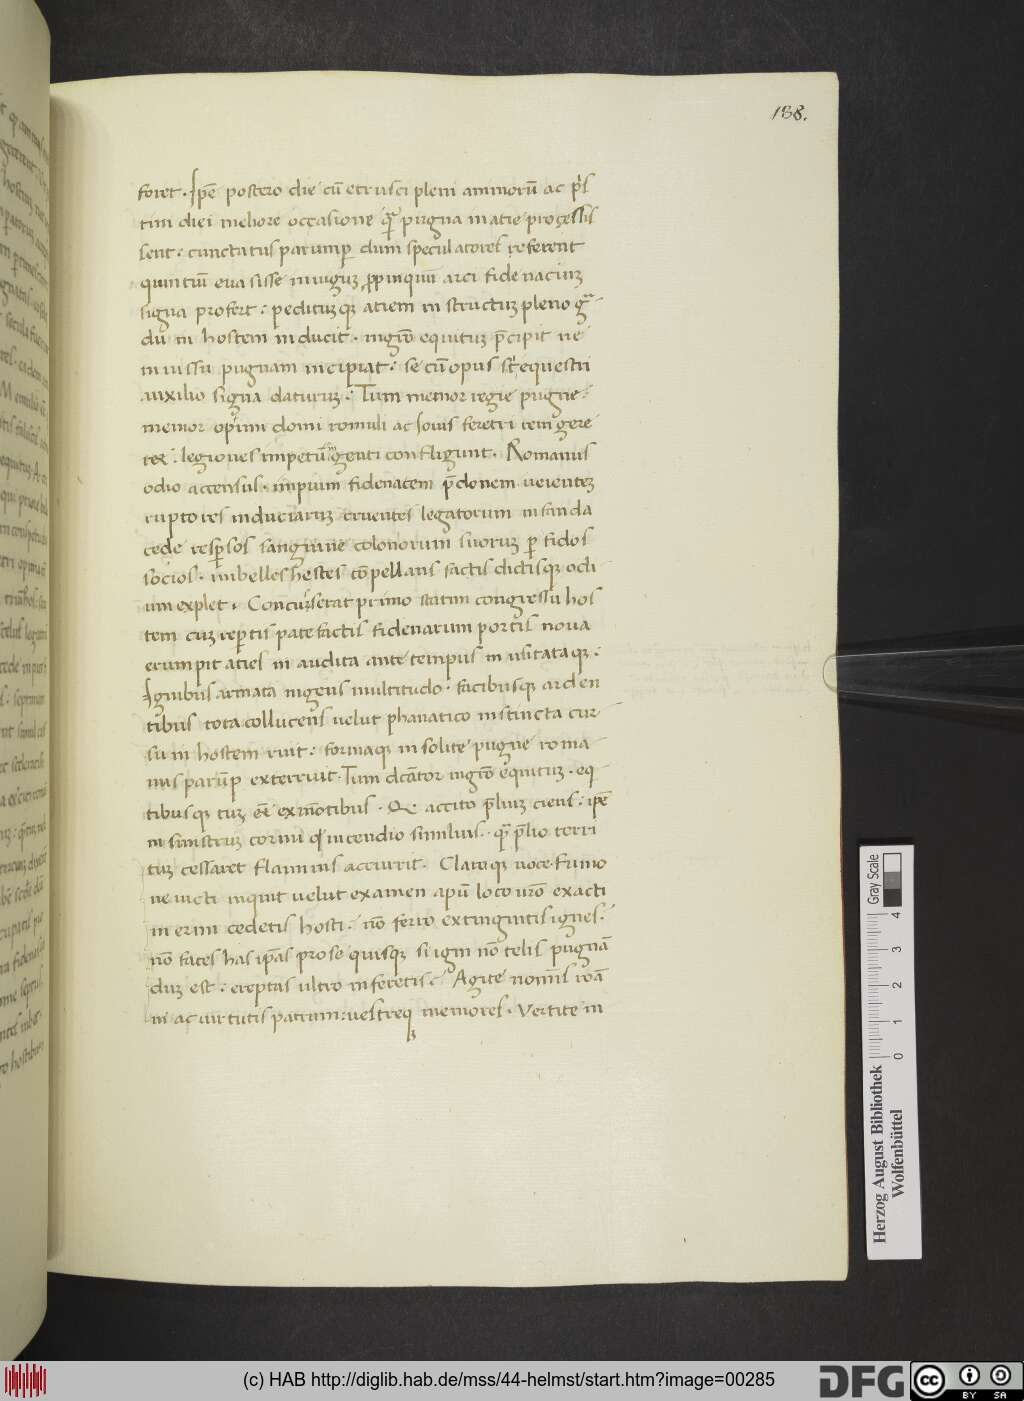 188.
foret. Ipē postero die cū etrusci pleni animorū ac p̄s
tini diei meliore occasione q̄ pugna in atie processis
sent: cunctatus parump̄ dum speculatores referent
quintiū evasisse in iuguꝫ ꝓpinquū arci fidenaciuꝫ
signa profert: peditūqꝫ atiem in structuꝫ pleno gͣ
du in hostem inducit. mgr̄o equituꝫ p̄cipit ne
in iussu pugnam incipiat: se cū opus sit equestri
auxilio signa daturuꝫ: Tum memor regie pugne:
memor opimi doni romuli ac Iovis feretri rem gere
ret: legiones impetu īgenti confligunt. Romanus
odio accensus. impium fidenatem p̄donem veienteꝫ
ruptores induciaruꝫ cruentos legatorum in fanda
cede resp̄sos sanguine colonorum suoruꝫ ꝑfidos
socios. imbelles hostes cōpellans factis dictisqꝫ odi
um explet. Concusserat primo statim congressu hos
tem cuꝫ repentis patefactis fidenarum portis nova
erumpit aties in audita ante tempus in usitataqꝫ:
Ignibus armata ingens multitudo. facibusqꝫ arden
tibus tota collucens velut phanatico instincta cur
su in hostem ruit: formaqꝫ in solite pugne roma
nus parūp exterruit. Tum dcātor mgr̄o equituꝫ. eq
tibusqꝫ cuꝫ eē ex mōtibus. Qe accito p̄liuꝫ ciens: ipē
in sinistruꝫ cornu qd incendio similius. q̄ p̄lio terri
tuꝫ cessaret flammas accurrit. Claraqꝫ voce. fumo
ne victi inquit velut examen apū loco vr̄o exacti
in ermi cedetis hosti. nō ferro extinguitis ignes.
nō faces has ipās pro se quisqꝫ si igni nō telis pugnā
duꝫ est: ereptas ultro inferetis: Agite nomīs roā
ni ac virtutis patrum: vestreqꝫ memores. Vertite in
Gray Scale
0 1 2 3 4
Herzog August Bibliothek
Wolfenbüttel
(c) HAB http://diglib.hab.de/mss/44-helmst/start.htm?image=00285
DFG
cc BY SA